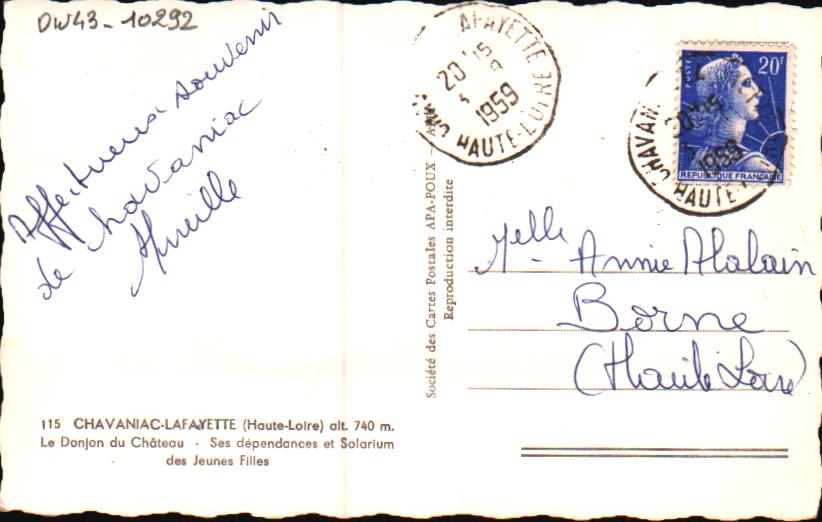 DW43-10292
Affectueux souvenir
de Chavaniac
Mireille
115 CHAVANIAC-LAFAYETTE (Haute-Loire) alt. 740 m.
Le Donjon du Château - Ses dépendances et Solarium
des Jeunes Filles
Société des Cartes Postales APA-POUX -
Reproduction interdite
AFAYETTE
20 15
1959
HAUTE-LOIRE
POSTES
20F
REPUBLIQUE FRANÇAISE
CHAVAN
1959
HAUTE
Melle Annie Alalain
Borne
(Haute Loire)